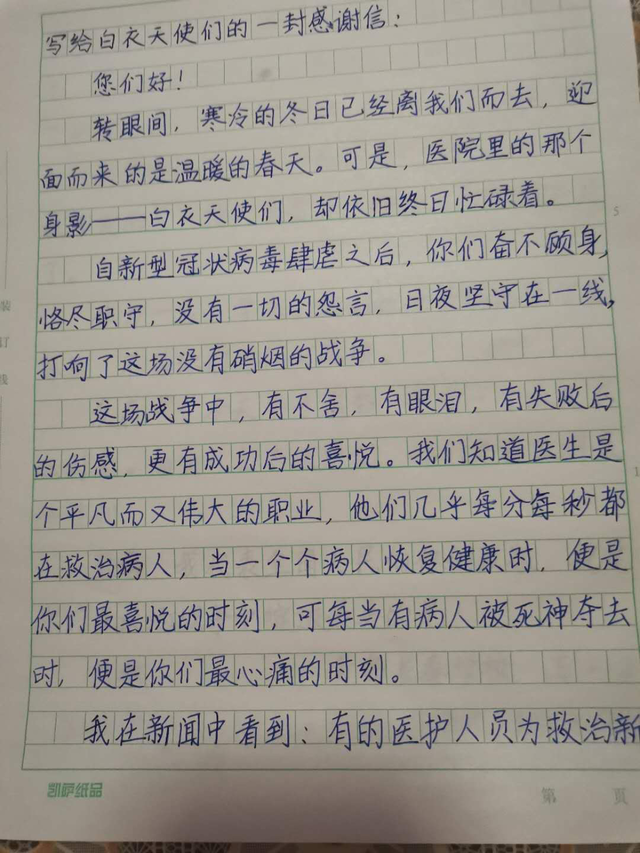 写给白衣天使们的一封感谢信：
您们好！
转眼间，寒冷的冬日已经离我们而去，迎
面而来的是温暖的春天。可是，医院里的那个
身影——白衣天使们，却依旧终日忙碌着。
自新型冠状病毒肆虐之后，你们奋不顾身，
恪尽职守，没有一切的怨言，日夜坚守在一线，
打响了这场没有硝烟的战争。
这场战争中，有不舍，有眼泪，有失败后
的伤感，更有成功后的喜悦。我们知道医生是
个平凡而又伟大的职业，他们几乎每分每秒都
在救治病人，当一个个病人恢复健康时，便是
你们最喜悦的时刻，可每当有病人被死神夺去
时，便是你们最心痛的时刻。
我在新闻中看到：有的医护人员为救治新
凯萨纸品
第 頁
装
订
线
5
1